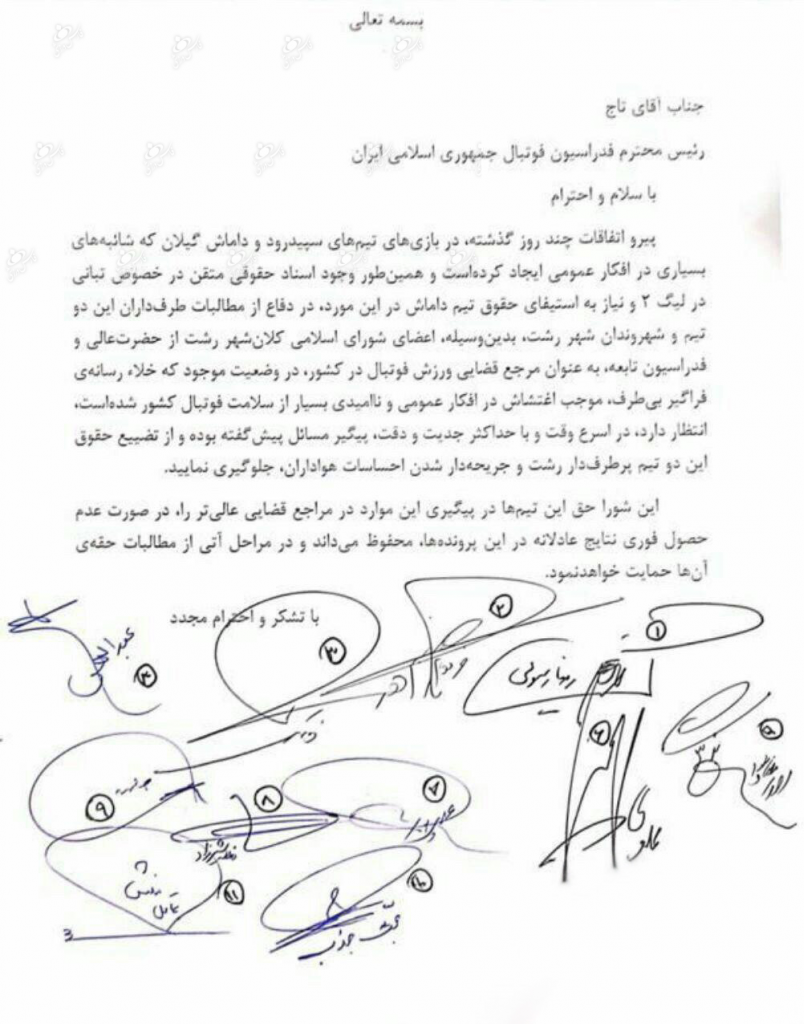 بسمه تعالی
جناب آقای تاج
رئیس محترم فدراسیون فوتبال جمهوری اسلامی ایران
با سلام و احترام
پیرو اتفاقات چند روز گذشته، در بازی‌های تیم‌های سپیدرود و داماش گیلان که شائبه‌های
بسیاری در افکار عمومی ایجاد کرده‌است و همین‌طور وجود اسناد حقوقی متقن در خصوص تبانی
در لیگ ۲ و نیاز به استیفای حقوق تیم داماش در این مورد، در دفاع از مطالبات طرف‌داران این دو
تیم و شهروندان شهر رشت، بدین‌وسیله، اعضای شورای اسلامی کلان‌شهر رشت از حضرت‌عالی و
فدراسیون تابعه، به عنوان مرجع قضایی ورزش فوتبال در کشور، در وضعیت موجود که خلاء رسانه‌ی
فراگیر بی‌طرف، موجب اغتشاش در افکار عمومی و ناامیدی بسیار از سلامت فوتبال کشور شده‌است،
انتظار دارد، در اسرع وقت و با حداکثر جدیت و دقت، پیگیر مسائل پیش‌گفته بوده و از تضییع حقوق
این دو تیم پرطرف‌دار رشت و جریحه‌دار شدن احساسات هواداران، جلوگیری نمایید.
این شورا حق این تیم‌ها در پیگیری این موارد در مراجع قضایی عالی‌تر را، در صورت عدم
حصول فوری نتایج عادلانه در این پرونده‌ها، محفوظ می‌داند و در مراحل آتی از مطالبات حقه‌ی
آن‌ها حمایت خواهدنمود.
با تشکر و احترام مجدد
۱
۲
۳
۴
رضا رسولی
۵
۶
علوی
۷
۸
۹
۱۰
۱۱